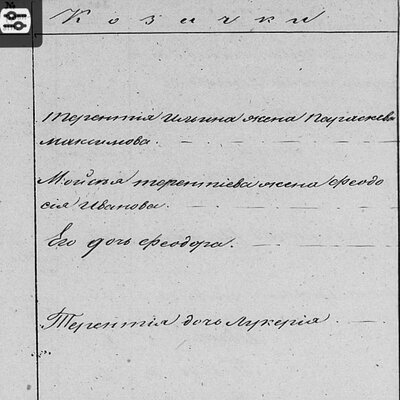 Козачки
Терентія Ильина жена Параскева
Максимова.
Мойсѣя терентіева жена феодо
сія Иванова.
Его дочь феодора.
Терентія дочь Лукерія